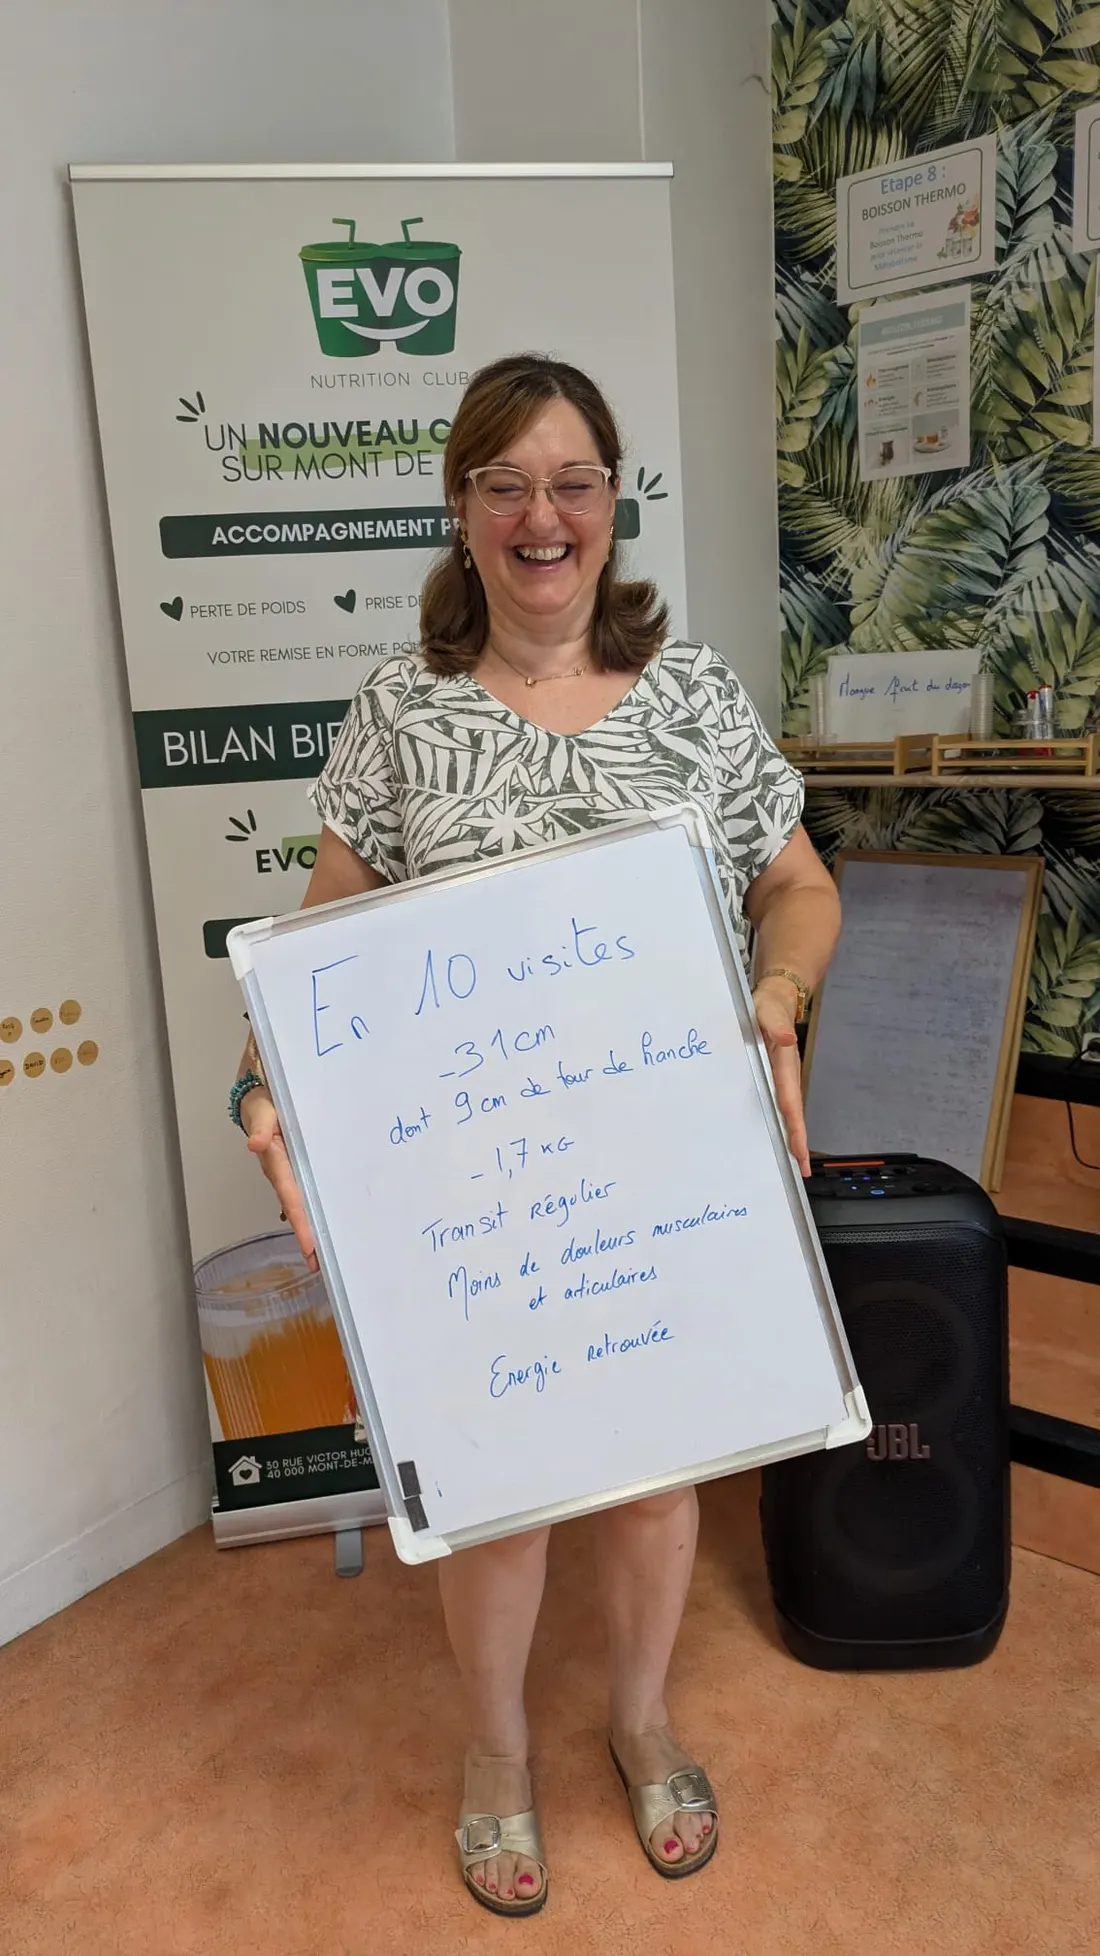 EVO
NUTRITION CLUB
UN NOUVEAU C
SUR MONT DE
ACCOMPAGNEMENT P
PERTE DE POIDS PRISE DE
VOTRE REMISE EN FORME
BILAN BI
EVO
30 RUE VICTOR HUG
40 000 MONT-DE-M
Etape 8 :
BOISSON THERMO
Boisson Thermo
Mangue fruit du dragon
En 10 visites
-31cm
dont 9cm de tour de hanche
-1,7 KG
Transit Régulier
Moins de douleurs musculaires
et articulaires
Energie retrouvée
JBL